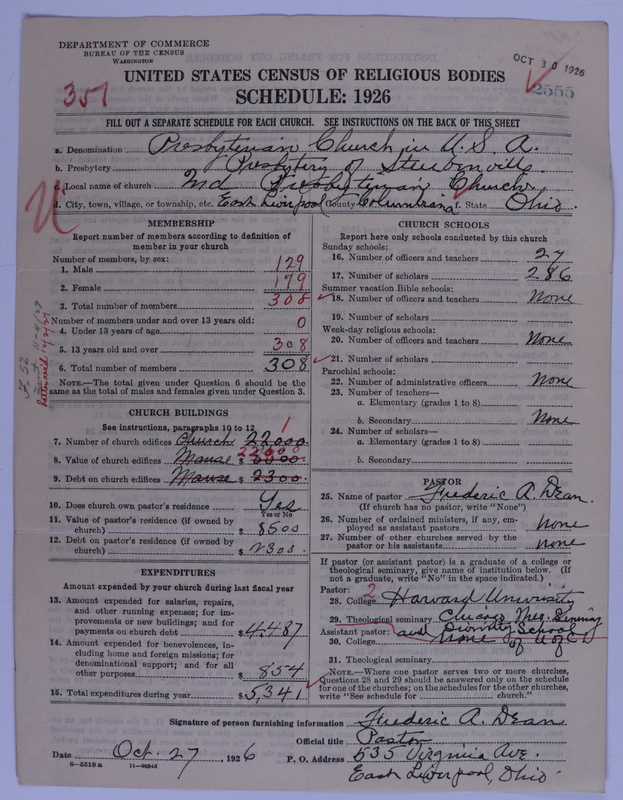 DEPARTMENT OF COMMERCE
BUREAU OF THE CENSUS
WASHINGTON
OCT 30 1926
UNITED STATES CENSUS OF RELIGIOUS BODIES
2555
357
SCHEDULE: 1926
FILL OUT A SEPARATE SCHEDULE FOR EACH CHURCH. SEE INSTRUCTIONS ON THE BACK OF THIS SHEET
a. Denomination Presbyterian Church in U.S.A.
b. Presbytery Presbytery of Steubenville
c. Local name of church 2nd Presbyterian Church
d. City, town, village, or township, etc. East Liverpool County Columbiana f. State Ohio.
MEMBERSHIP
Report number of members according to definition of member in your church
Number of members, by sex:
1. Male 129
2. Female 179
3. Total number of members 308
Number of members under and over 13 years old:
4. Under 13 years of age 0
5. 13 years old and over 308
6. Total number of members 308
NOTE.—The total given under Question 6 should be the
same as the total of males and females given under Question 3.
CHURCH BUILDINGS
See instructions, paragraphs 10 to 12
1
7. Number of church edifices Church 22000.
22000
8. Value of church edifices Manse $
9. Debt on church edifices Manse $ 2300.
10. Does church own pastor's residence Yes
Yes or No
11. Value of pastor's residence (if owned by
church) $ 8500
12. Debt on pastor's residence (if owned by
church) $ 2300.
EXPENDITURES
Amount expended by your church during last fiscal year
13. Amount expended for salaries, repairs,
and other running expenses; for im-
provements or new buildings; and for
payments on church debt $ 4,487
14. Amount expended for benevolences, in-
cluding home and foreign missions; for
denominational support; and for all
other purposes $ 854
15. Total expenditures during year $ 5,341
CHURCH SCHOOLS
Report here only schools conducted by this church
Sunday schools:
16. Number of officers and teachers 27
17. Number of scholars 286
Summer vacation Bible schools:
18. Number of officers and teachers None
19. Number of scholars
Week-day religious schools:
20. Number of officers and teachers None
21. Number of scholars
Parochial schools:
22. Number of administrative officers None
23. Number of teachers—
a. Elementary (grades 1 to 8)
b. Secondary None
24. Number of scholars—
a. Elementary (grades 1 to 8)
b. Secondary
PASTOR
25. Name of pastor Frederic A. Dean.
(If church has no pastor, write "None")
26. Number of ordained ministers, if any, em-
ployed as assistant pastors None
27. Number of other churches served by the
pastor or his assistants None
If pastor (or assistant pastor) is a graduate of a college or
theological seminary, give name of institution below. (If
not a graduate, write "No" in the space indicated.)
Pastor: 2
28. College Harvard University
29. Theological seminary Chicago Theo. Seminary
Assistant pastor: and Divinity School
30. College None of U of C
31. Theological seminary
NOTE.—Where one pastor serves two or more churches,
Questions 28 and 29 should be answered only on the schedule
for one of the churches; on the schedules for the other churches,
write "See schedule for church."
Signature of person furnishing information Frederic A. Dean
Official title Pastor
Date Oct. 27, 1926 P. O. Address 535 Virginia Ave.
East Liverpool, Ohio.